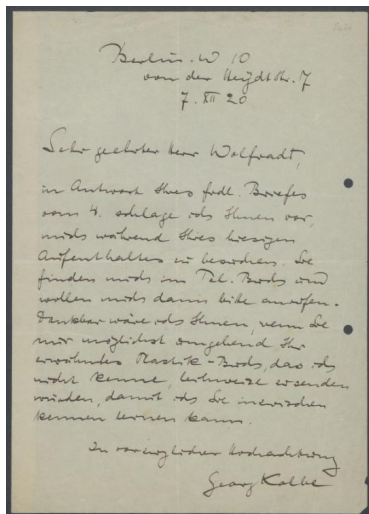 Berlin. W 10
von der Heydtstr. 7
7. XII 20
Sehr geehrter Herr Wolfradt,
in Antwort Ihres frdl. Briefes
vom 4. schlage ich Ihnen vor,
mich während Ihres hiesigen
Aufenthaltes zu besuchen. Sie
finden mich im Tel. Buch und
wollen mich dann bitte anrufen.
Dankbar wäre ich Ihnen, wenn Sie
mir möglichst umgehend Ihr
erwähntes Plastik-Buch, das ich
nicht kenne, leihweise zusenden
würden, damit ich Sie inzwischen
kennen lernen kann.
In vorzüglicher Hochachtung
Georg Kolbe